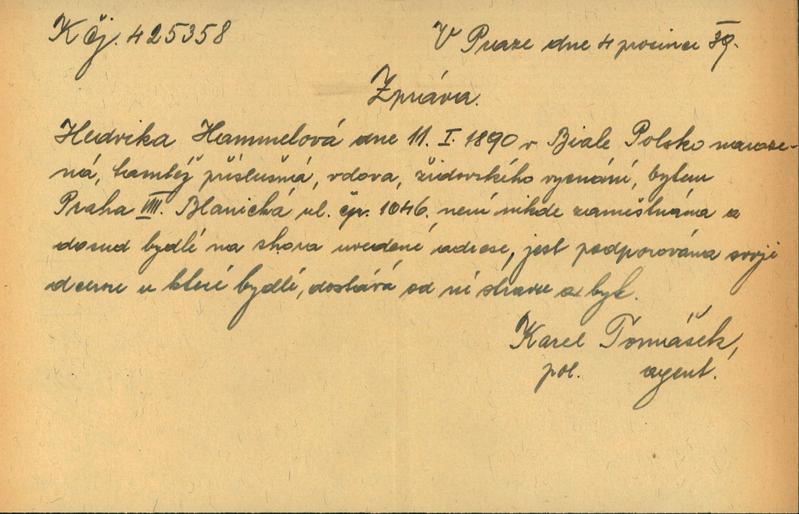 K čj. 425358
V Praze dne 4 prosince 39.
Zpráva.
Hedvika Hammelová dne 11. I. 1890 v Biale Polsko naroze-
ná, tamtéž příslušná, vdova, židovského vyznání, bytem
Praha VIII. Blanická ul. čp. 1046. není nikde zaměstnána a
dosud bydlí na shora uvedené adrese, jest podporována svojí
dcerou u které bydlí, dostává od ní stravu a byt.
Karel Tomášek,
pol. agent.